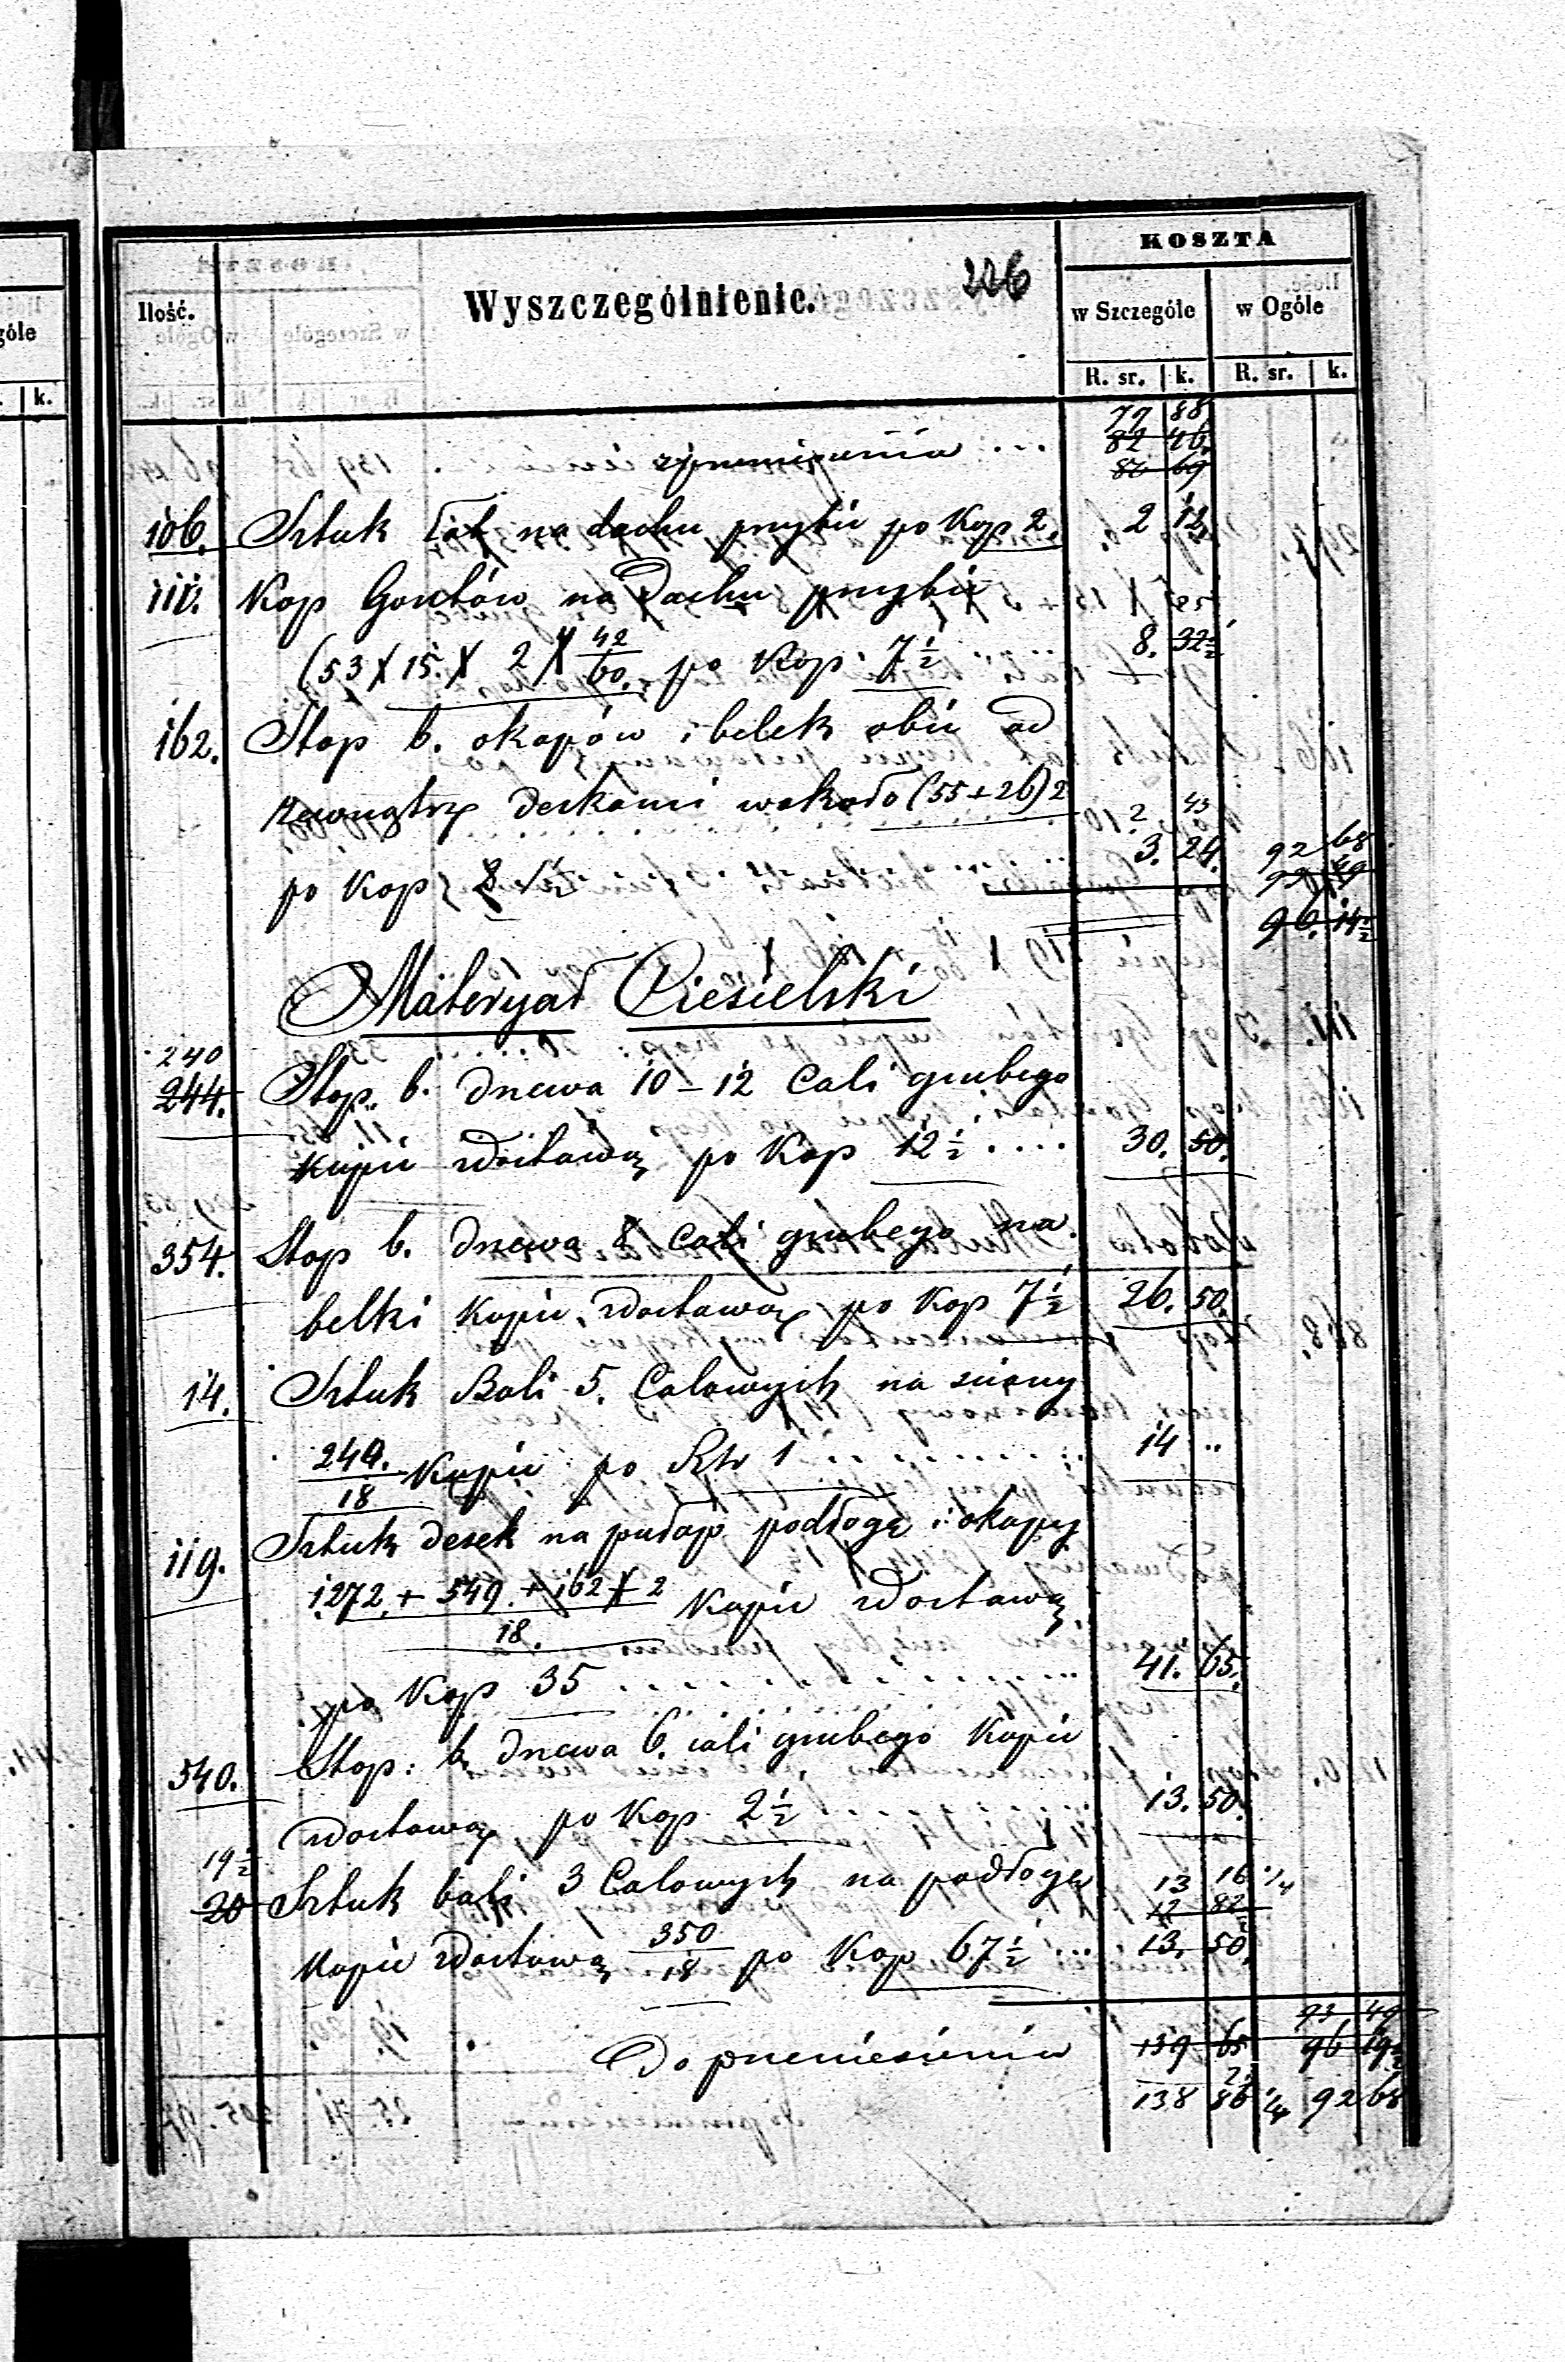 KOSZTA
226
Ilość. Wyszczególnienie. w Szczególe w Ogóle
R. sr. k. R. sr. k.
góle
k.
77 88
82 46.
z przeniesienia ... 86 69
106. Sztuk łat na dachu przybić po Kop 2. 2 12
111. Kop Gontów na Dachu przybić
(53 X 15. X 2 X 42/60. po Kop. 7 1/2 8. 32 1/2
162. Stop b. okapów i belek obić od
zewnątrz deskami wokoło (55+26)2
2 43
po Kop 3. 24. 92 68
96. 14 1/2
Materyał Ciesielski
240
244. Stop. b. drzewa 10 – 12 Cali grubego
kupić z dostawą po Kop 12 1/2 .... 30. 50.
354. Stop b. drzewa 8 Cali grubego na
belki Kupić z dostawą po Kop 7 1/2 26. 50.
14. Sztuk Bali 5. Calowych na ściany
249./18 Kupić po Rsr 1 ......... 14 "
119. Sztuk desek na pułap podłogę i okapy
1272 + 549 + 162 X 2 / 18. Kupić z dostawą
po Kop 35 ......... 41. 65.
540. Stop: b. drzewa 6. cali grubego Kupić
z dostawą po Kop 2 1/2 13. 50.
19 1/2
20 Sztuk bali 3 Calowych na podłogę 13 16 1/4
12 82
kupić z dostawą 350/18 po Kop 67 1/2 ... 13. 50.
93 49
Do przeniesienia 139 65 96 19 1/2
138 86 1/4 92 68